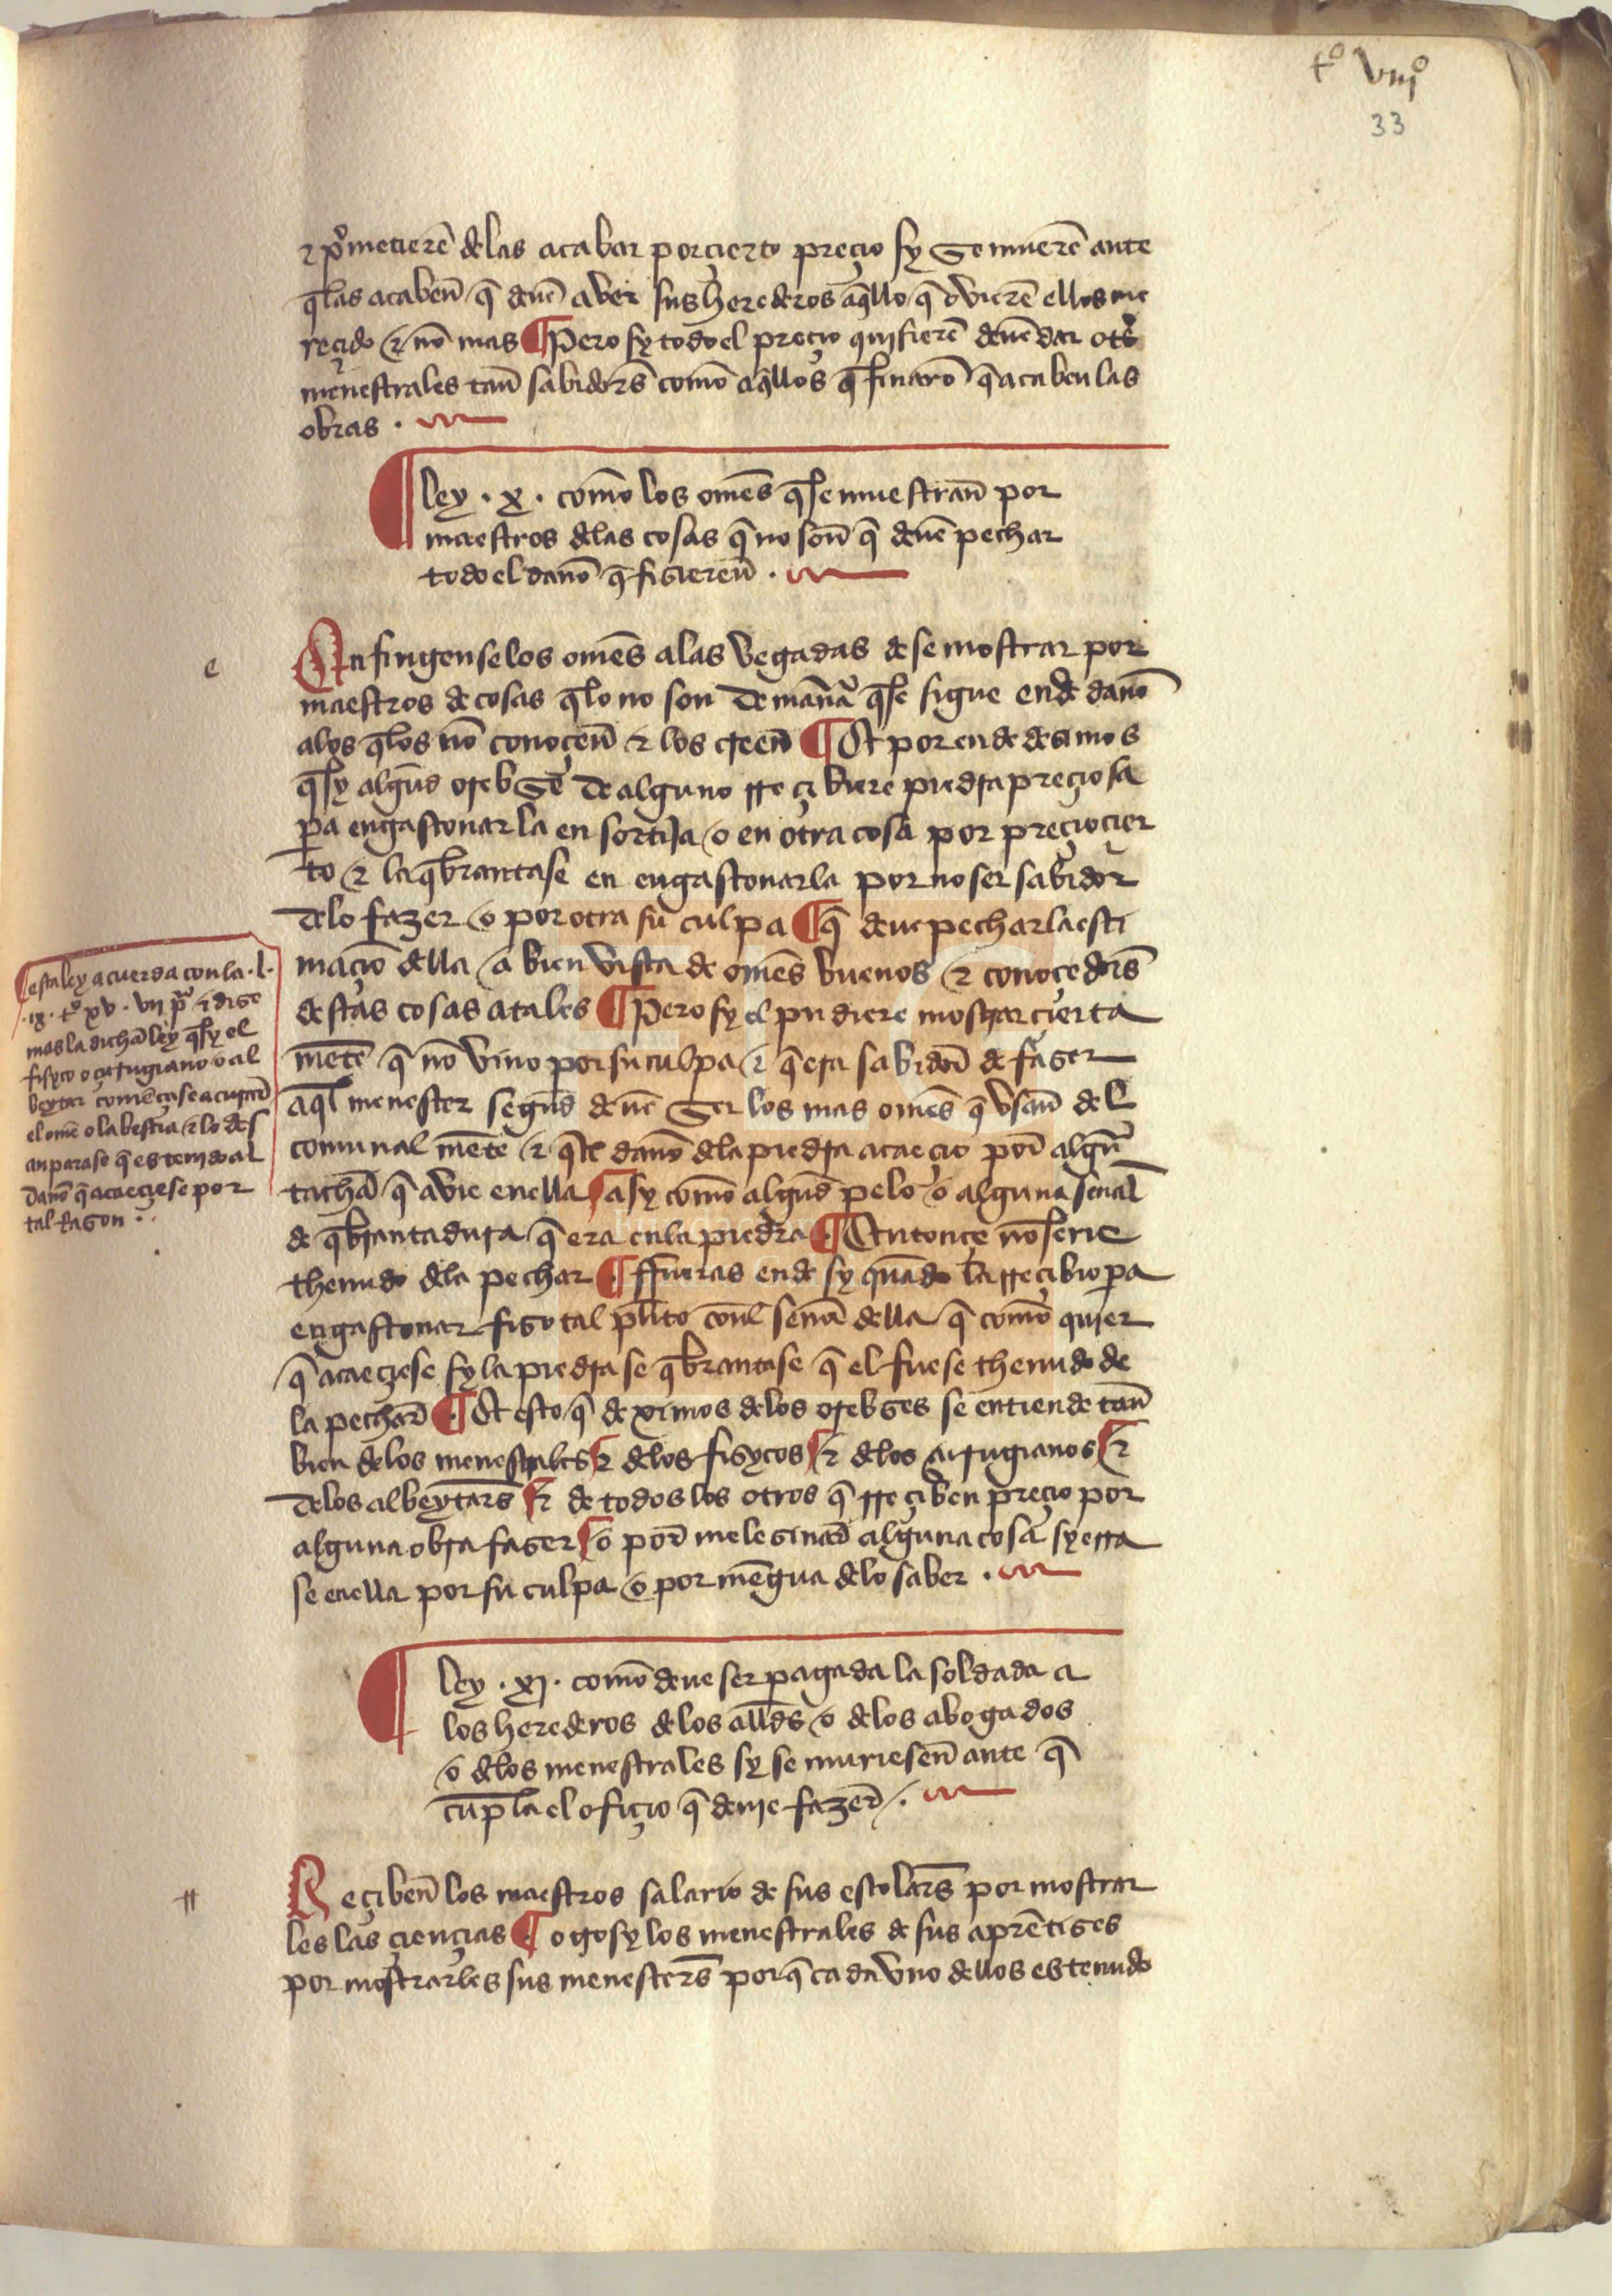 tº viijº
33
⁊ prometierẽ delas acabar por çierto preçio sy se murierẽ ante
q̃ las acabeñ q̃ deuẽ aver sus herederos aq̃llo q̃ ovierẽ ellos me
reçido ⁊ nõ mas ¶ Pero sy todo el preçio quisierẽ deuẽ dar otros
menestrales tañ sabidors̃ comõ aq̃llos q̃ finarõ q̃ acaben las
obras .
¶ ley . x . comõ los omẽs q̃ se muestrañ por
maestros delas cosas q̃ no soñ q̃ deuẽ pechar
todo el danõ q̃ fisiereñ .
e
Enfingense los omẽs alas vegadas de se mostrar por
maestros de cosas q̃ lo no son de manãa q̃ se sigue ende danõ
alos q̃ los nõ conoçeñ ⁊ los creeñ ¶ Et por ende desimos
q̃ sy algũd orebse de alguno rreçibiere piedra preçiosa
pa engastonarla en sortija o en otra cosa por preçio çier
to ⁊ la q̃brantase en engastonarla por no ser sabidor
delo fazer o por otra su culpa ¶ q̃ deue pechar la esti
maçiõ della a bien vista de omẽs buenos ⁊ conoçedors̃
destas cosas atales ¶ Pero sy el pudiere mostrar çierta
mẽte q̃ nõ vino por su culpa ⁊ q̃ era sabidor̃ de faser
aq̃l menester segũd deuẽ ser los mas omẽs q̃ vsañ del
comunal mẽte ⁊ q̃l danõ dela piedra acaeçio por̃ algũa
tachã q̃ avie enella asy comõ algũd pelo o alguna senal̃
de q̃brantadura q̃ era en la piedra ¶ Entonçe nõ serie
thenudo dela pechar ¶ ffueras ende sy quãdo la rreçibio pa
engastonar fiso tal plito conl senõr della q̃ comõ quier
q̃ acaeçiese sy la piedra se q̃brantase q̃ el fuese thenudo de
la pechar̃ ¶ Et esto q̃ deximos delos orebses se entiende tañ
bien delos menestrales ⁊ delos fisycos ⁊ delos çirugianos ⁊
delos albeytars̃ ⁊ de todos los otros q̃ rreçiben preçio por
alguna obra faser o por̃ melesinar̃ alguna cosa sy erra
se enella por su culpa o por mẽgua delo saber .
esta ley acuerda con la . l .
. ix . tº xv . vij pã ⁊ dise
mas la dichã ley q̃ sy el
fisyco o çirugiano o al
beytar comẽçase a curar̃
el omẽ o la bestia ⁊ lo des
anparase q̃ es tenido al
danõ q̃ acaeçiese por
tal rason .
¶ ley . xj . comõ deue ser pagada la soldada a
los herederos delos allds̃ o delos abogados
o delos menestrales sy se muriesẽn ante q̃
cunpla el ofiçio q̃ deuie fazer̃ .
rr
Reçibeñ los maestros salario de sus escolars̃ por mostrar
les las çiençias ¶ otrosy los menestrales de sus aprẽtises
por mostrarles sus menesters̃ porq̃ cada vno dellos es tenudo